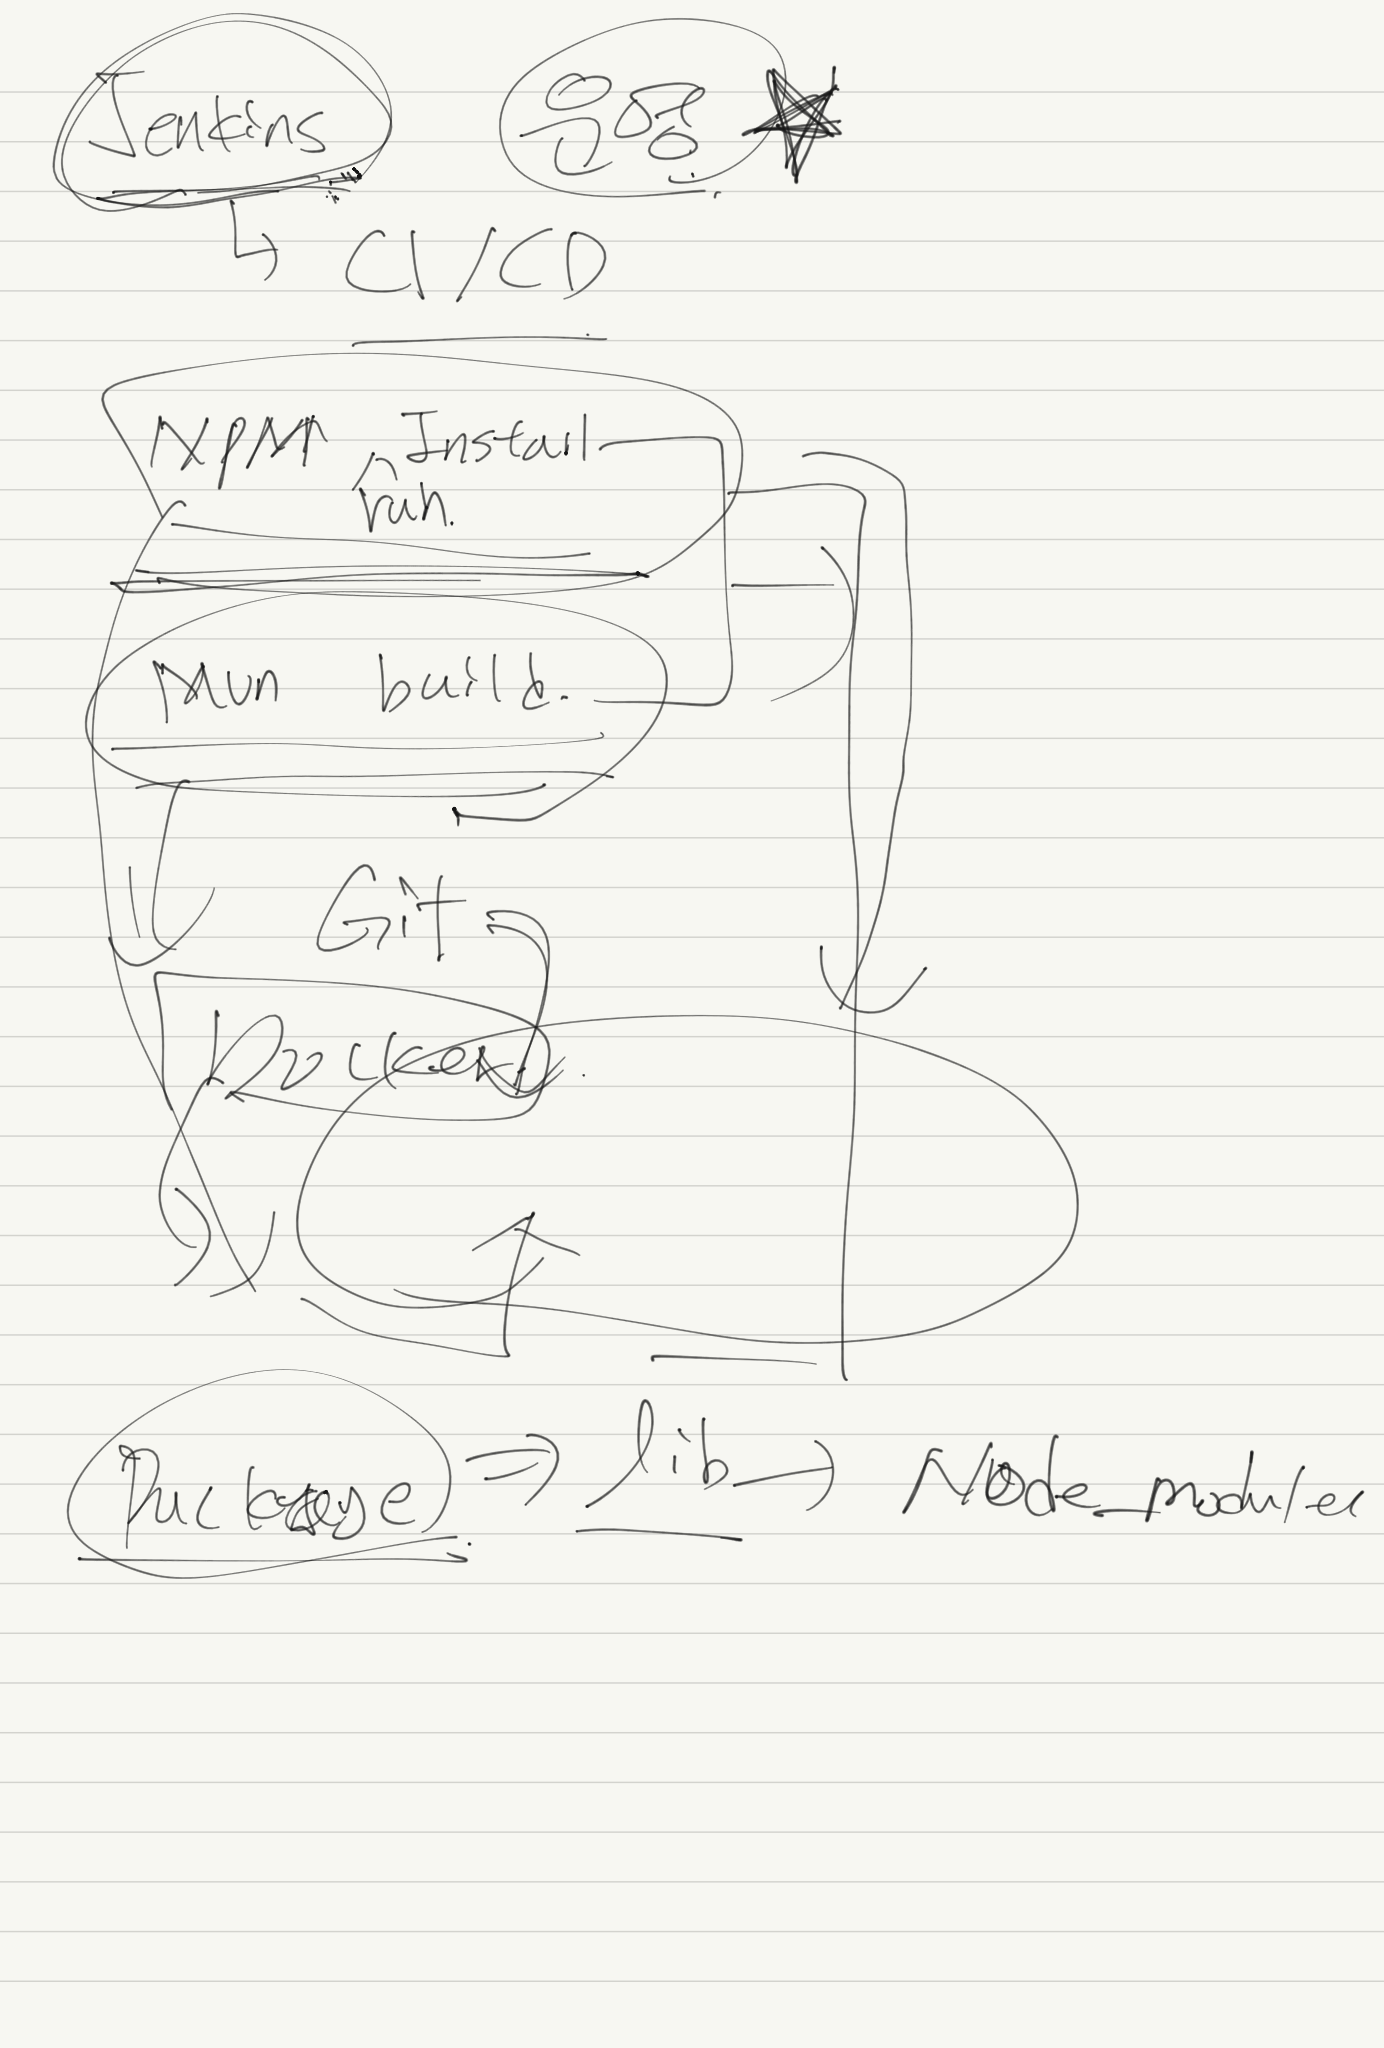 Jenkins
CI/CD
NPM Install
run.
build.
Git
Docker
Package lib Node_modules